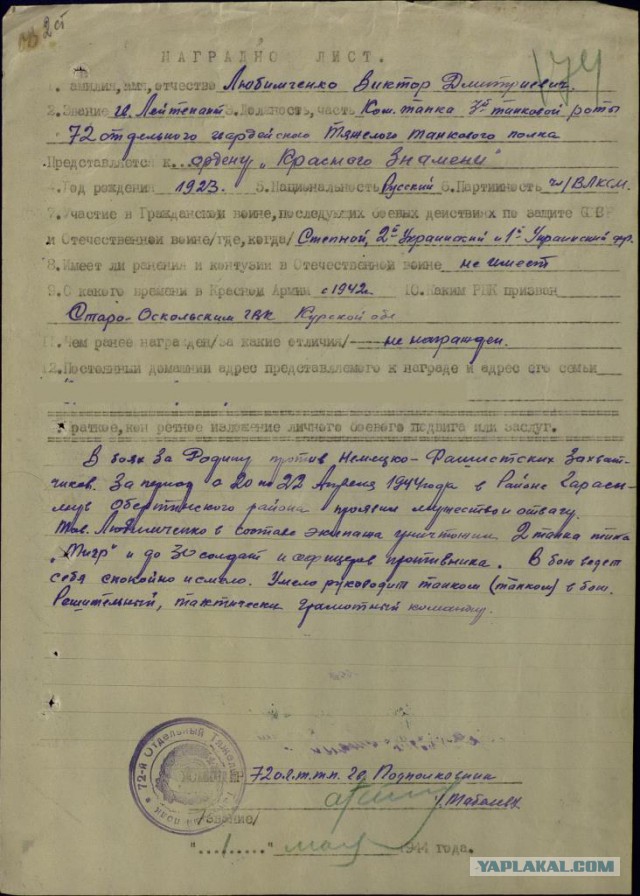 2 ст
174
НАГРАДНО ЛИСТ.
1. амилия, имя, отчество Любимченко Виктор Дмитриевич
2. Звание гв. Лейтенант 3. Должность, часть Ком. танка танковой роты
72 отдельного гвардейского Тяжелого танкового полка
Представляется к ордену „Красного Знамени"
4. Год рождения 1923. 5. Национальность Русский 6. Партийность чл/ВЛКСМ.
7. Участие в Гражданской войне, последующих боевых действиях по защите СССР
и Отечественной войне/где, когда/ Степной, 2й Украинский и 1й Украинский фр.
8. Имеет ли ранения и контузии в Отечественной войне не имеет
9. С какого времени в Красной Армии с 1942г. 10. Каким РВК призван
Старо-Оскольским ГВК Курской обл
11. Чем ранее награжден/за какие отличия/ не награжден.
12. Постоянный домашний адрес представляемого к награде и адрес его семьи
Краткое, кон ретное изложение личного боевого подвига или заслуг.
В боях За Родину против Немецко-Фашистских Захват-
чиков. За период с 20 по 22 Апреля 1944 года в Районе Гарасы-
мув Обертинского района проявил мужество и отвагу.
Тов. Любимченко в составе экипажа уничтожил 2 танка типа
„Тигр" и до 30 солдат и офицеров противника. В бою ведет
себя спокойно и смело. Умело руководит танком (танком) в бою.
Решительный, тактически грамотный командир.
72-й Отдельный Тяжелый
72 о.г.т.т.п. гв. Подполковник
/звание/
"1" мая 1944 года.
YAPLAKAL.COM